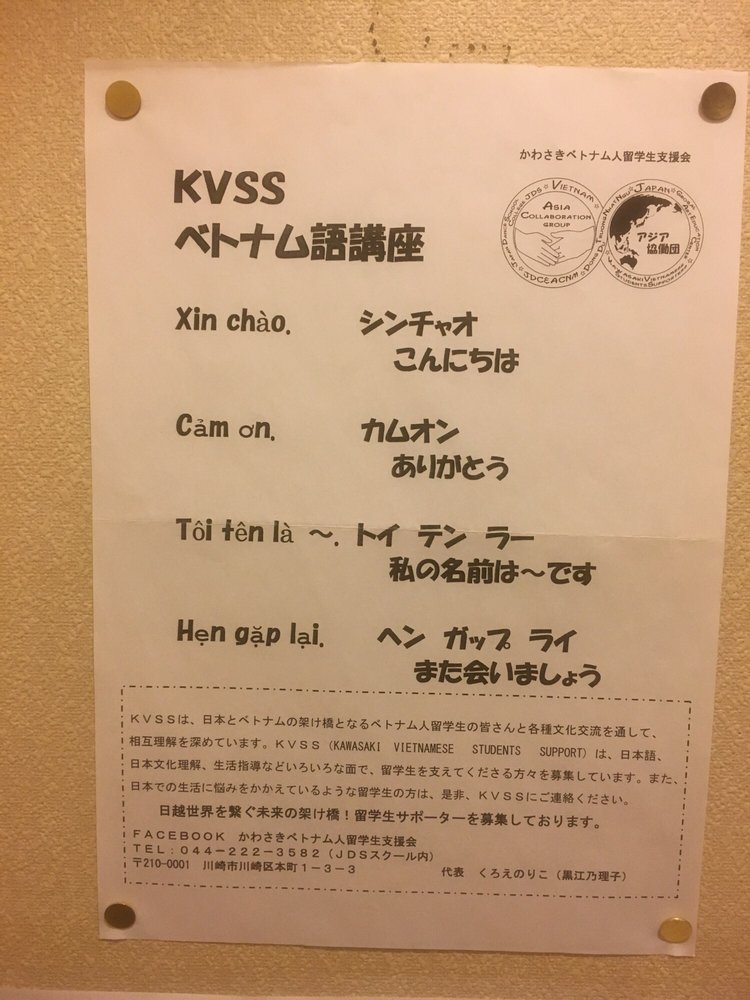 かわさきベトナム人留学生支援会
KVSS
ベトナム語講座
JDS ☆ VIETNAM ☆
ASIA
COLLABORATION
GROUP
JAPAN
アジア
協働団
Xin chào. シンチャオ
こんにちは
Cảm ơn. カムオン
ありがとう
Tôi tên là ～. トイ テン ラー
私の名前は～です
Hẹn gặp lại. ヘン ガップ ライ
また会いましょう
KVSSは、日本とベトナムの架け橋となるベトナム人留学生の皆さんと各種文化交流を通して、
相互理解を深めています。KVSS（KAWASAKI VIETNAMESE STUDENTS SUPPORT）は、日本語、
日本文化理解、生活指導などいろいろな面で、留学生を支えてくださる方々を募集しています。また、
日本での生活に悩みをかかえているような留学生の方は、是非、KVSSにご連絡ください。
日越世界を繋ぐ未来の架け橋！留学生サポーターを募集しております。
FACEBOOK かわさきベトナム人留学生支援会
TEL：044－222－3582（JDSスクール内）
〒210-0001 川崎市川崎区本町1－3－3
代表 くろえのりこ（黒江乃理子）